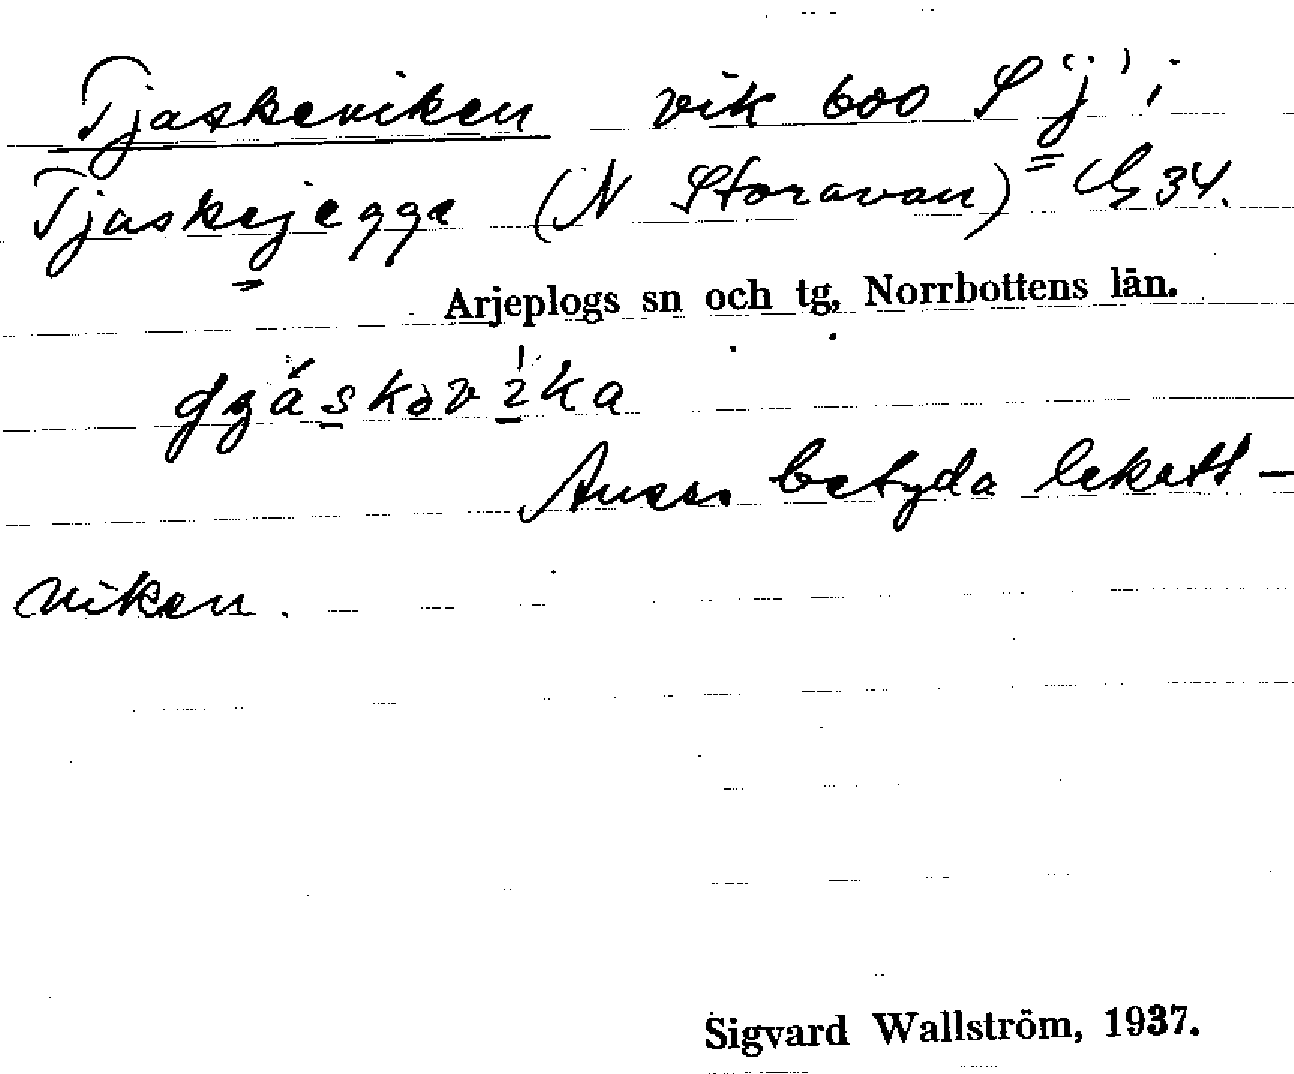 Tjaskeviken vik 600 S "j" i
Tjaskejegge (N Storavan) = G 34.
Arjeplogs sn och tg, Norrbottens län.
Anses betyda lekatt-
viken.
Sigvard Wallström, 1937.